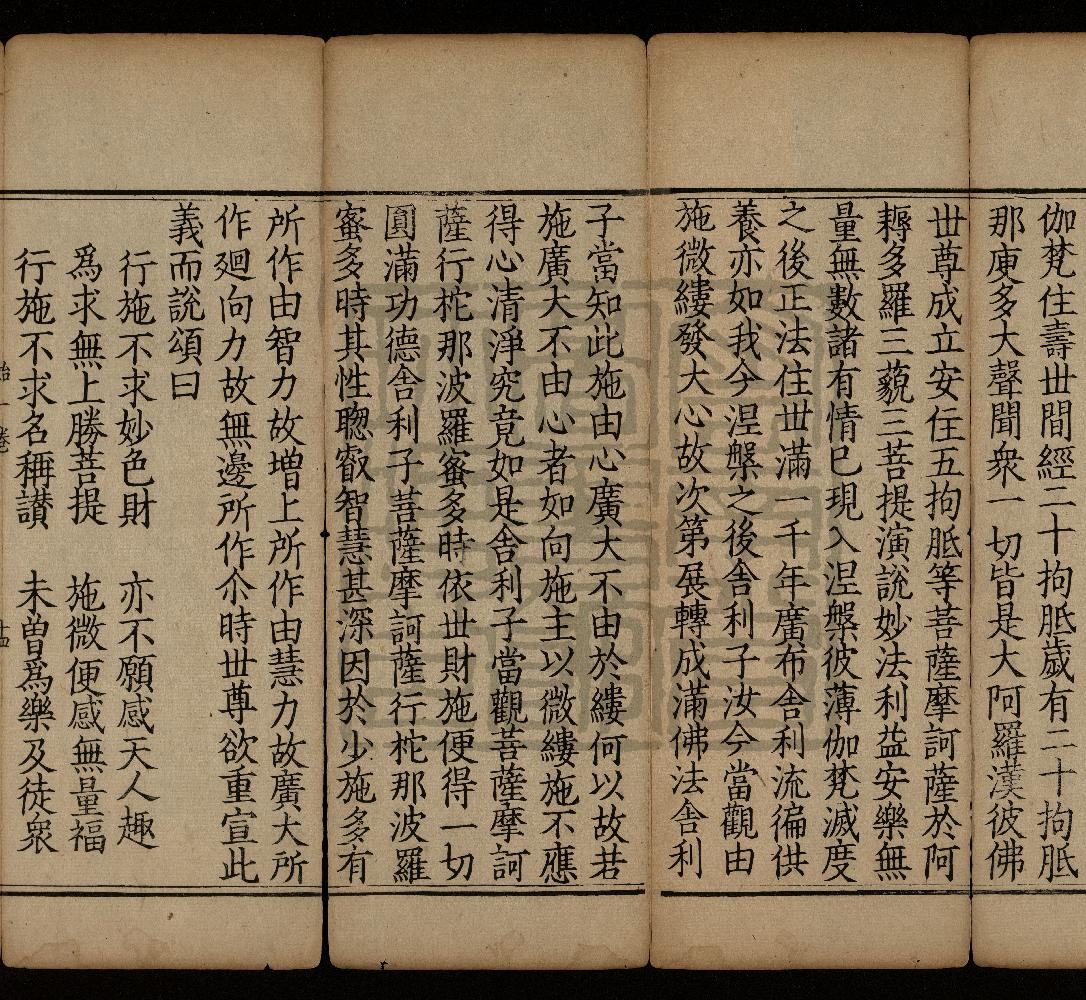 伽梵住壽世間經二十拘胝歲有二十拘胝
那庾多大聲聞衆一切皆是大阿羅漢彼佛
世尊成立安住五拘胝等菩薩摩訶薩於阿
耨多羅三藐三菩提演說妙法利益安樂無
量無數諸有情已現入涅槃彼薄伽梵滅度
之後正法住世滿一千年廣布舍利流徧供
養亦如我今涅槃之後舍利子汝今當觀由
施微縷發大心故次第展轉成滿佛法舍利
子當知此施由心廣大不由於縷何以故若
施廣大不由心者如向施主以微縷施不應
得心清淨究竟如是舍利子當觀菩薩摩訶
薩行柁那波羅蜜多時依世財施便得一切
圓滿功德舍利子菩薩摩訶薩行柁那波羅
蜜多時其性聰叡智慧甚深因於少施多有
所作由智力故增上所作由慧力故廣大所
作廻向力故無邊所作尒時世尊欲重宣此
義而說頌曰
行施不求妙色財　亦不願感天人趣
爲求無上勝菩提　施微便感無量福
行施不求名稱讃　未曾爲樂及徒衆